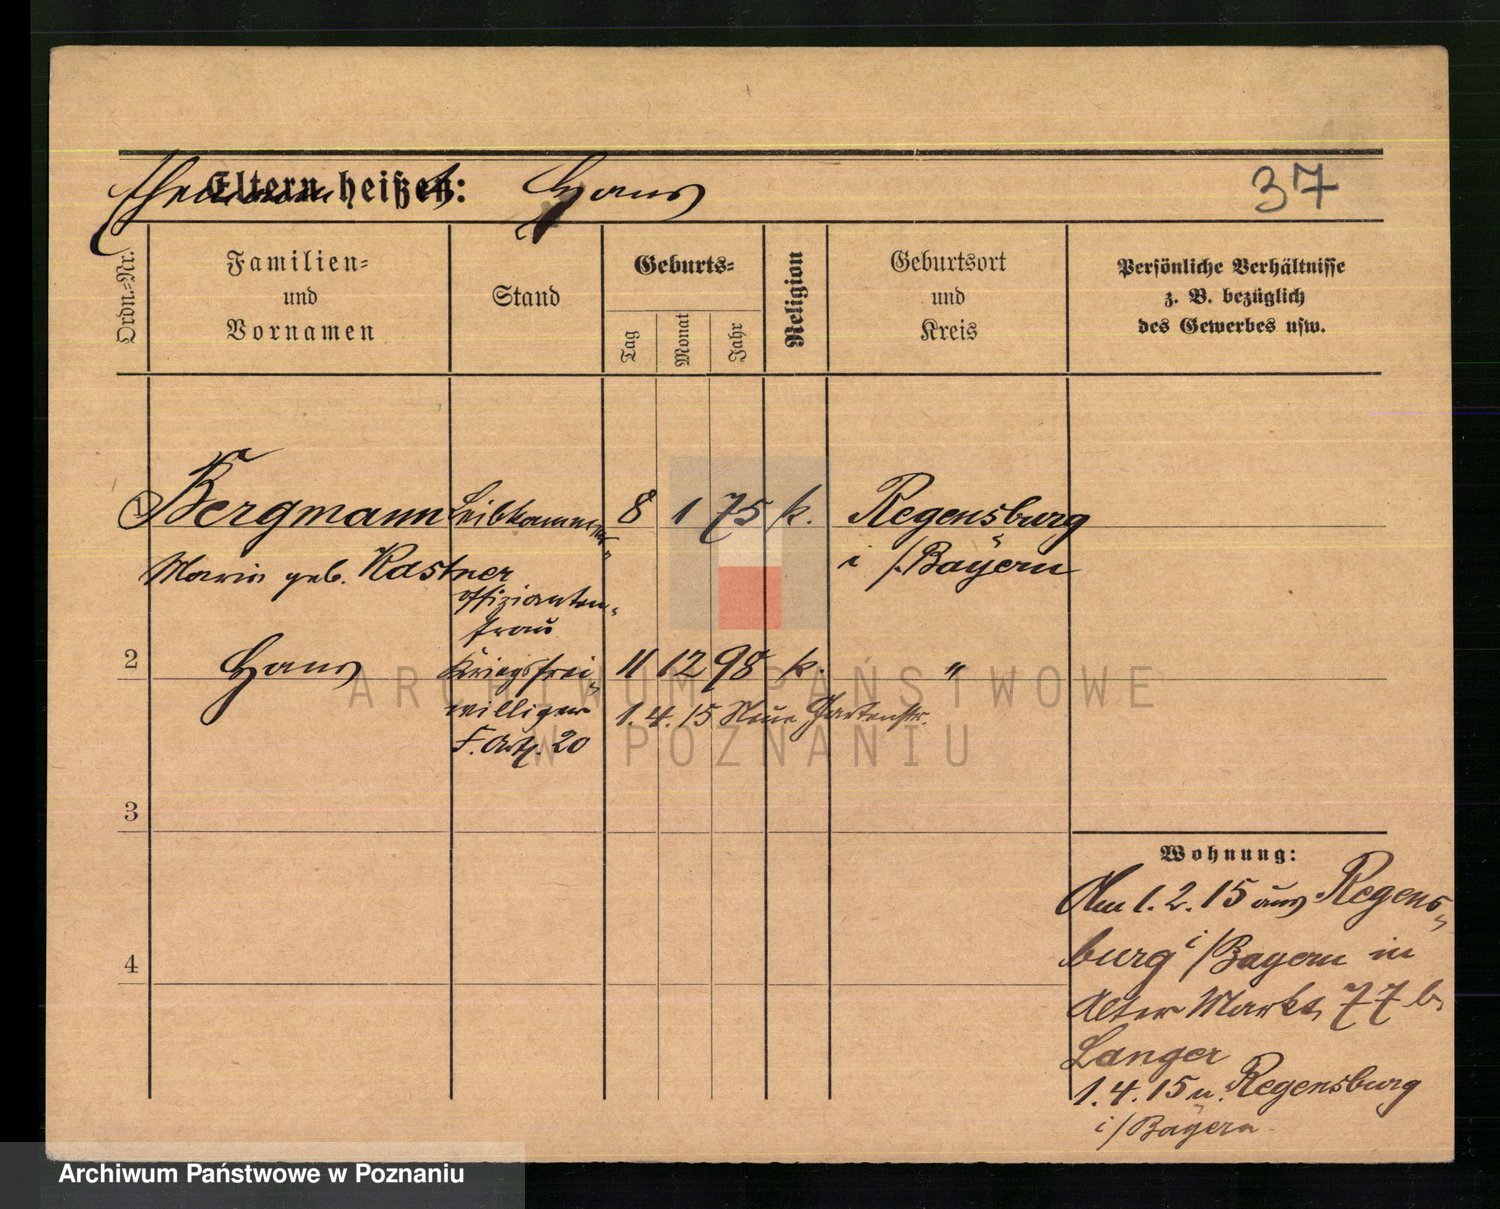 Eltern heißen: Hans
37
Ordn.-Nr.
Familien-
und
Vornamen
Stand
Geburts-
Tag
Monat
Jahr
Religion
Geburtsort
und
Kreis
Persönliche Verhältnisse
z. B. bezüglich
des Gewerbes usw.
1 Bergmann Leibkammer- 8 1 75 k. Regensburg
Maria geb. Kastner i/Bayern
offizianten-
frau
2 Hans Kriegsfrei- 11 12 98 k. "
williger 1.4.15 Neue Gartenstr.
F. Art. 20
3
4
Wohnung:
Am 1.2.15 aus Regens-
burg i/Bayern in
Alter Markt 77 b.
Langer
1.4.15 n. Regensburg
i/Bayern
ARCHIWUM PAŃSTWOWE
W POZNANIU
Archiwum Państwowe w Poznaniu